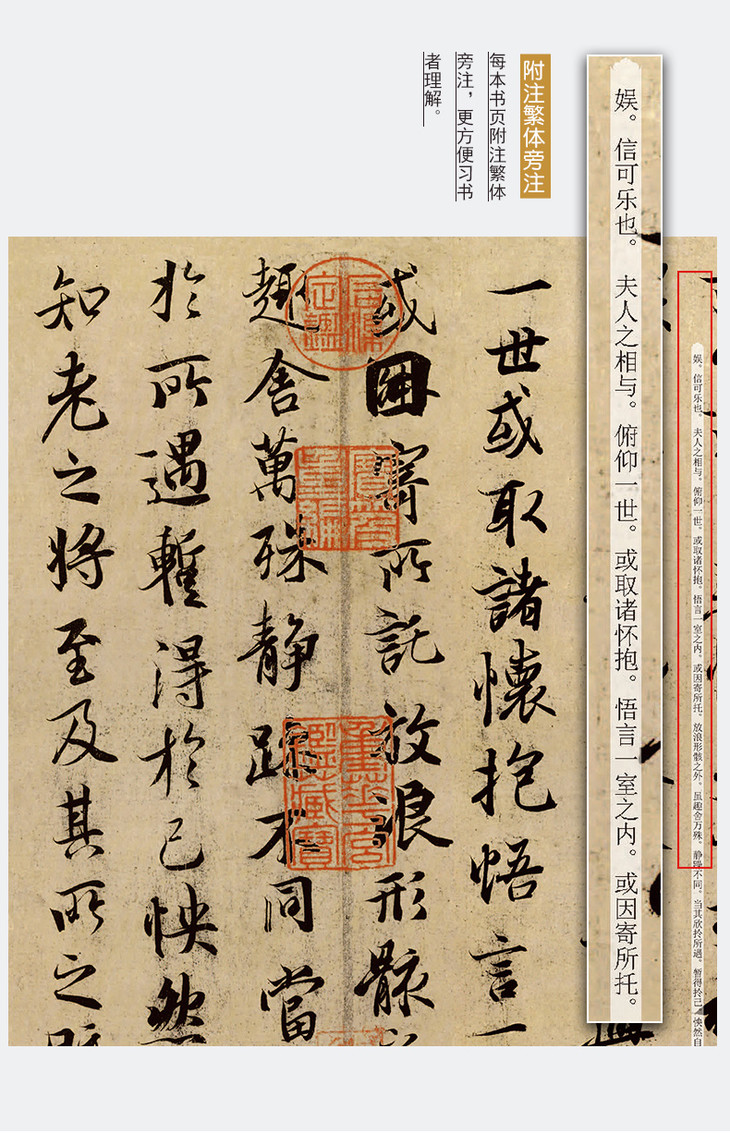 附注繁体旁注
每本书页附注繁体
旁注，更方便习书
者理解。
娱。信可乐也。夫人之相与。俯仰一世。或取诸怀抱。悟言一室之内。或因寄所托。放浪形骸之外。虽趣舍万殊。静躁不同。当其欣拎所遇。暂得拎己。怏然自
娱。信可乐也。夫人之相与。俯仰一世。或取诸怀抱。悟言一室之内。或因寄所托。
一世或取諸懷抱悟言一
或因寄所託放浪形骸
趣舍萬殊静躁不同當
於所遇蹔得於己怏然
知老之将至及其所之